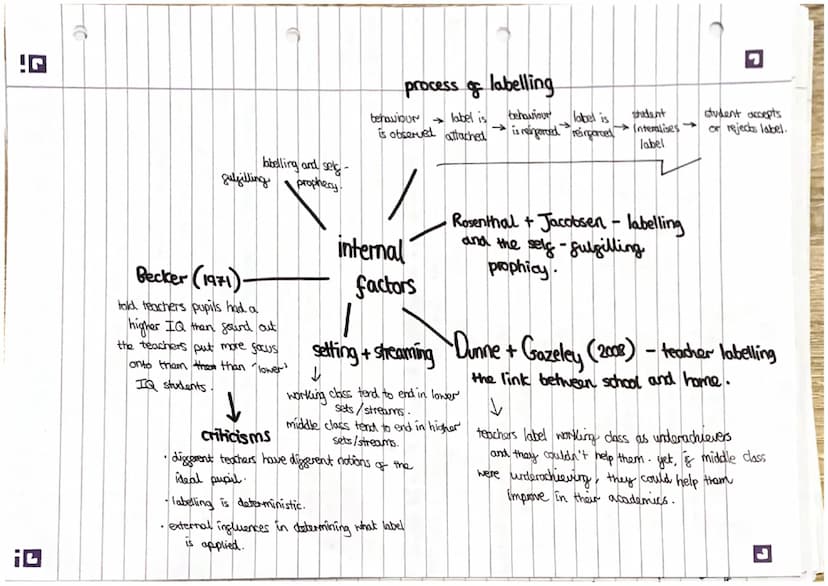 process of labelling
behaviour → label is → behaviour → label is → student → student accepts
is observed attached is reinforced reinforced internalises or rejects label.
label
labelling and self-
fulfilling prophecy.
internal
factors
Rosenthal + Jacobsen - labelling
and the self-fulfilling
prophicy.
Becker (1971)
told teachers pupils had a
higher IQ than found out
the teachers put more focus
onto them than 'lower'
IQ students.
criticisms
· different teachers have different notions of the
ideal pupil.
· labelling is deterministic.
· external influences in determining what label
is applied.
setting + streaming
↓
working class tend to end in lower
sets/streams.
middle class tend to end in higher
sets/streams.
Dunne + Gazeley (2008) - teacher labelling
the link between school and home.
↓
teachers label working class as underachievers
and they couldn't help them. yet, if middle class
were underachieving, they could help them
improve in their academics.